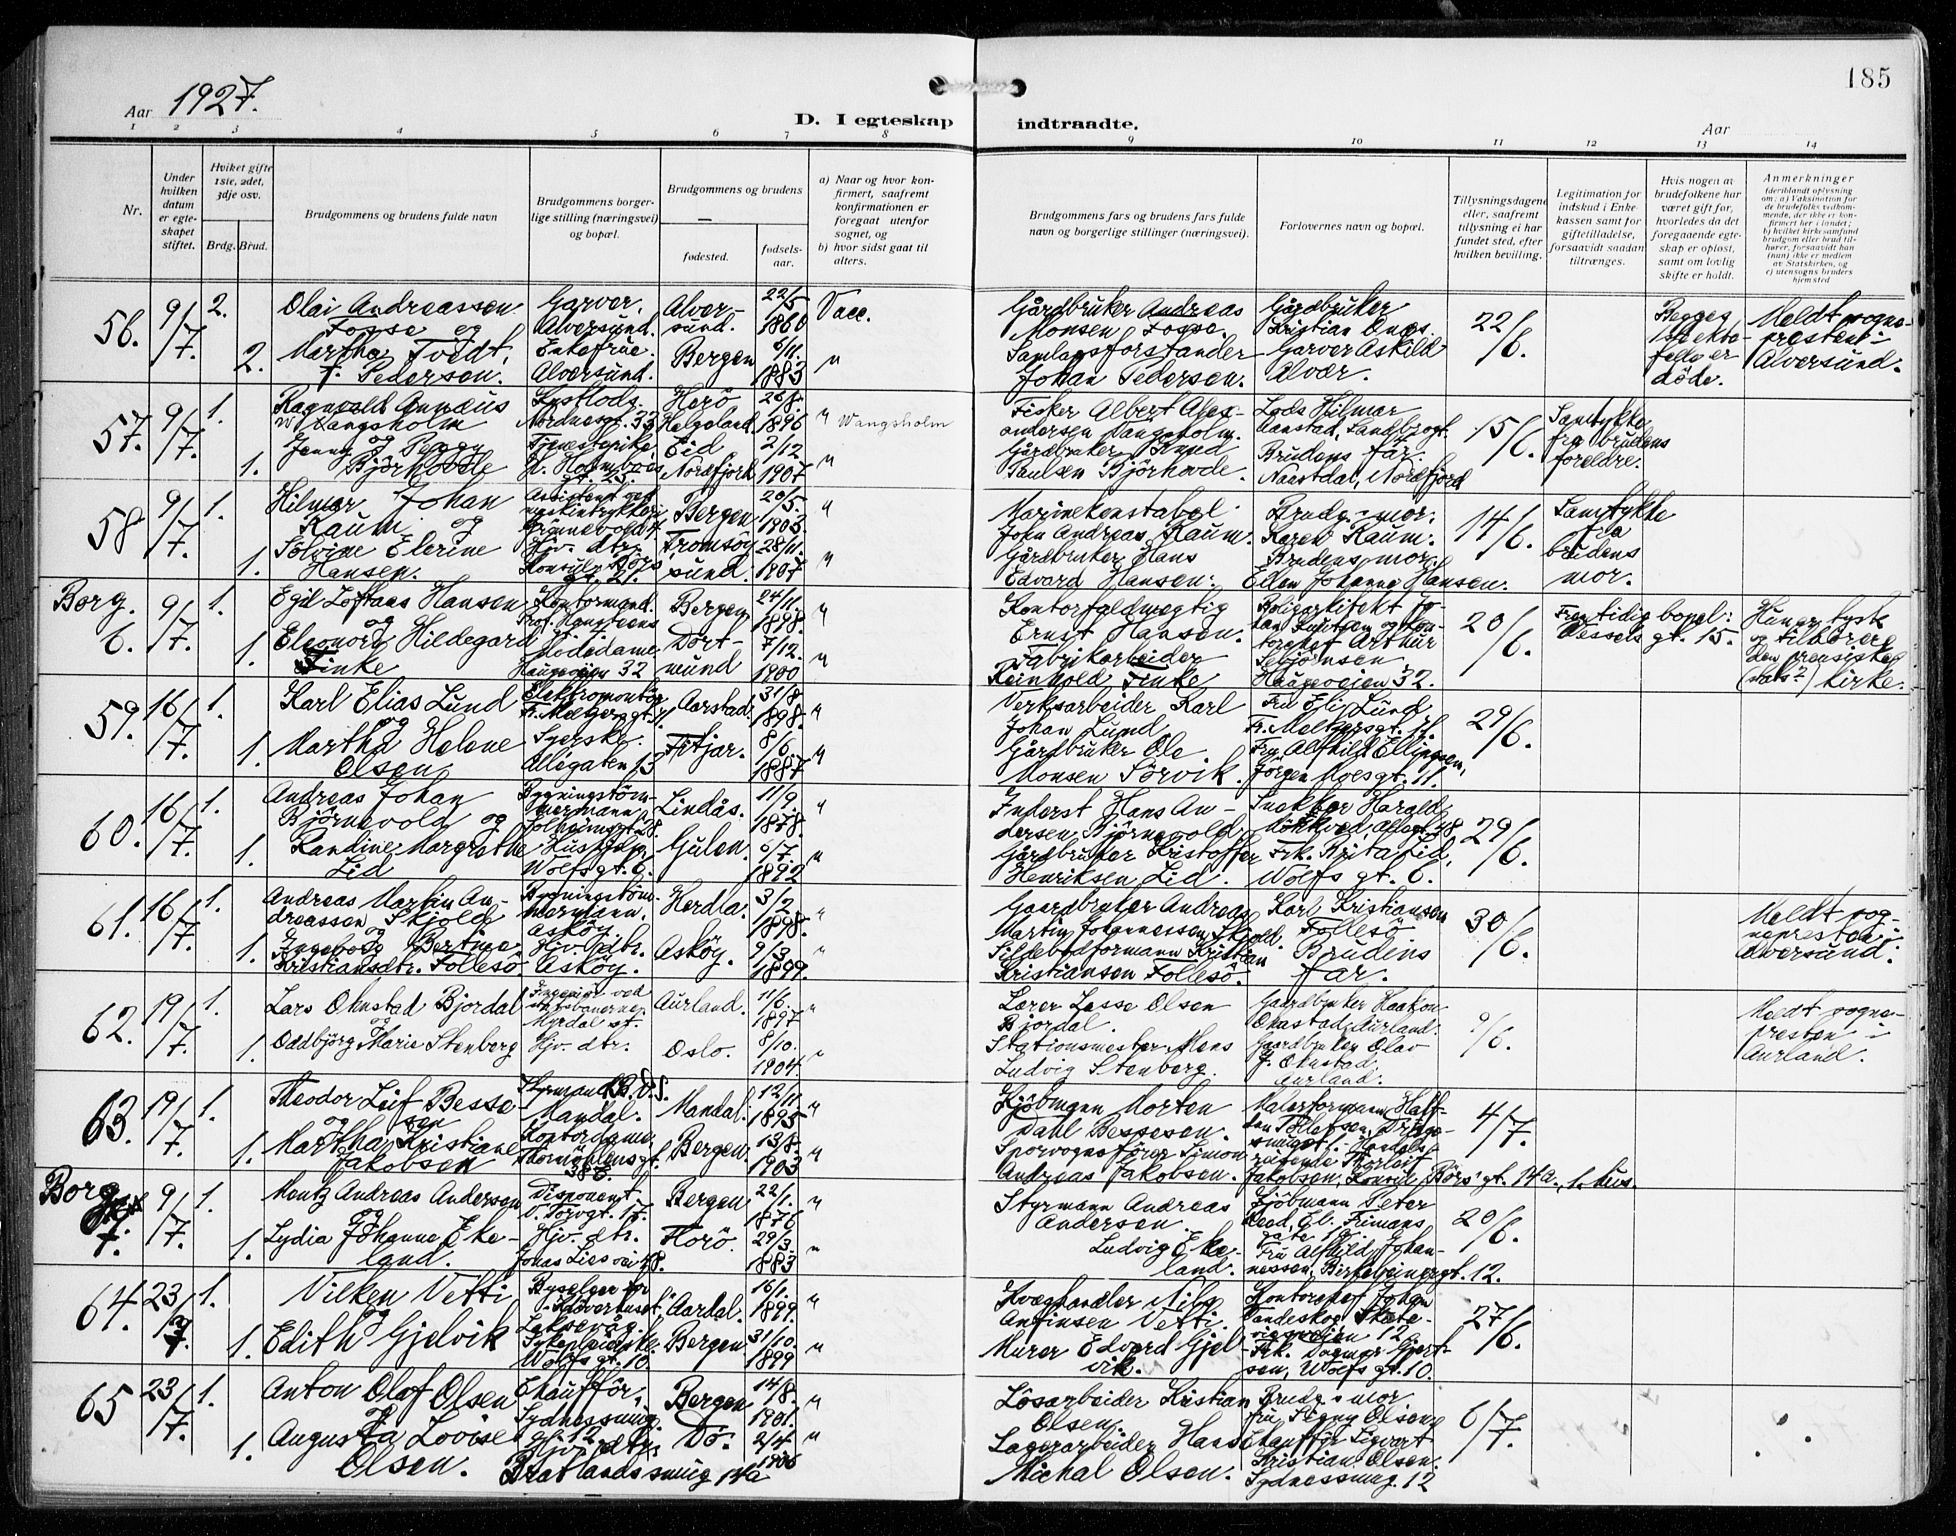 185
Aar 1927.
D. I egteskap indtraadte.
Aar
1 2 3 4 5 6 7 8 9 10 11 12 13 14
Nr.
Under hvilken datum er egteskapet stiftet.
Hviket gifte 1ste, 2det, 3dje osv.
Brdg. Brud.
Brudgommens og brudens fulde navn
Brudgommens borgerlige stilling (næringsvei) og bopæl.
Brudgommens og brudens
fødested.
fødselsaar.
a) Naar og hvor konfirmert, saafremt konfirmationen er foregaat utenfor sognet, og
b) hvor sidst gaat til alters.
Brudgommens fars og brudens fars fulde navn og borgerlige stillinger (næringsvei).
Forlovernes navn og bopæl.
Tillysningsdagene eller, saafremt tillysning ei har fundet sted, efter hvilken bevilling.
Legitimation for indskud i Enkekassen samt for giftetilladelse, forsaavidt saadan tiltrænges.
Hvis nogen av brudefolkene har været gift før, hvorledes da det foregaaende egteskap er opløst, samt om lovlig skifte er holdt.
Anmerkninger
56. 9/7. 2. Olai Andreassen Fosse og
Garver. Alversund.
Alversund. 22/5 1860 Vacc.
Gårdbruker Andreas Monsen Fosse.
Gårdbruker Kristian Ones.
22/6.
Begges 1ste ektefelle er døde.
Meldt sognepresten i Alversund.
2. Martha Tvedt, f. Pedersen.
Enkefrue. Alversund.
Bergen 6/11. 1883 "
Samlagsforstander Johan Pedersen.
Garver Askild Alvær.
57. 9/7. 1. Ragnvald Annæus Vangsholm og
Kystlods. Nordnesgt. 33
Herö Helgeland 26/8. 1896 " Wangsholm
Fisker Albert Alexandersen Vangsholm.
Lods Hilmar
15/6.
Samtykke fra brudens foreldre.
1. Jenny Peggy Björhovde
Eid Nordfjord 2/12 1907 "
Gårdbruker Knud Paulsen Björhovde.
Brudens far. Naustdal, Nordfjord
58 9/7. 1. Hilmar Johan Raum og
Assistent ved
Bergen. 20/5. 1903. "
Marinekonstabel John Andreas Raum.
Brudg.s mor. Karen Raum.
14/6.
Samtykke fra brudens mor.
1. Sölvine Elerine Hansen.
Hjv. dtr. Konsul Börs gt. 21.
Tromsöysund. 28/11. 1907 "
Gårdbruker Hans Edvard Hansen.
Brudens mor. Ellen Johanne Hansen.
Borg. 6. 9/7. 1. Egil Loftaas Hansen og
Kontormand. Prof. Hansteens
Bergen 24/11. 1898. "
Kontorfuldmegtig Ernst Hansen.
20/6.
Fremtidig bopel: Wessels gt. 15.
Hun er tysk og tilhörer den preusiske (nats?) kirke.
1. Eleonora Hildegard Finke
Modedame Haugeveien 32
Dortmund 7/12. 1900 "
Fabrikarbeider Reinhold Finke
Haugeveien 32.
59. 16/7. 1. Karl Elias Lund og
Elektromontör Fr. Meltzersgt. 11
Aarstad. 31/8 1898. "
Verksarbeider Karl Johan Lund
Fru Eli Lund Fr. Meltzersgt. 11.
29/6.
1. Martha Helene Olsen
Syerske. Allegaten 13
Fitjar. 8/6 1887 "
Gårdbruker Ole Monsen Sörvik.
Fru Alfhild Ellingsen, Jörgen Moesgt. 11.
60. 16/7. 1. Andreas Johan Björnevold og
Bygningstömmermann, Solheimsgt. 28.
Lindås. 11/9. 1878. "
Inderst Hans Andersen Björnevold.
Snekker Harald
29/6.
1. Randine Margrethe Lid
Wolfsgt. 6.
Gulen. 9/7. 1892 "
Gårdbruker Kristoffer Henriksen Lid.
Frk. Brita Lid, Wolfs gt. 6.
61. 16/7. 1. Andreas Martin Andreassen Skjold og
Bygningstömmermann. Asköy.
Herdla. 3/2 1898. "
Gaardbruker Andreas Martin Johannessen Skjold.
Karl Kristiansen Follesö
30/6.
Meldt sognepresten i Alversund.
1. Ingeborg Bertine Kristiansdtr. Follesö
Hjv. dtr. Asköy.
Asköy. 9/3 1899. "
Sildebadformann Kristian Kristiansen Follesö.
Brudens far.
62. 19/7. 1. Lars Ohnstad Bjordal og
Ingeniör ved statsbanerne, Myrdal st.
Aurland. 11/6. 1897 "
Lærer Lasse Olsen Bjordal.
Gaardbruker Haakon Ohnstad, Aurland.
9/6.
Meldt sognepresten i Aurland.
1. Oddbjörg Marie Stenberg
Hjv. dtr.
Oslo. 8/10. 1904. "
Stationsmester Mons Ludvig Stenberg.
Gaardbruker Olav J. Ohnstad, Aurland.
63. 19/7. 1. Theodor Leif Bessesen og
Styrmand B.D.S. Mandal.
Mandal. 12/11 1895 "
Kjöbmann Morten Dahl Bessesen.
4/7.
1. Martha Kristiane Jakobsen
Kontordame, Thormöhlensgt. 38 E.
Bergen. 13/8. 1903 "
Sporvognsförer Simon Andreas Jakobsen.
Handelsreisende Thorleif Jakobsen, Konsul Börs' gt. 14a.
Borg. 7. 9/7. 1. Mentz Andreas Andersen og
Disponent. V. Torvgt. 17.
Bergen 22/1. 1876 "
Styrmann Andreas Andersen.
Kjöbmann Peter
20/6.
1. Lydia Johanne Ekeland.
Hjv. dtr. Jonas Lies vei 48.
Florö. 29/3. 1883 "
Ludvig Ekeland.
Fru Alfhild Johannessen, Birkebeinergt. 12.
64. 23/7. 1. Vilken Vetti og
Laksevåg.
Aardal. 16/1. 1899. "
Kvæghandler Nils Anfinsen Vetti.
Kontorchef Johan
27/6.
1. Edith Gjelvik
Sykepleierske Wolfs gt. 10
Bergen 31/10. 1899 "
Murer Edvard Gjelvik.
Frk. Dagmar Gjertsen, Wolfs gt. 10.
65 23/7. 1. Anton Olaf Olsen og
Chaufför, Sydnessmug. 12.
Bergen 14/8. 1901. "
Lösarbeider Kristian Olsen.
Brudg.s mor fru Signy Olsen
6/7.
1. Augusta Lovise Olsen.
Hjv. dtr. Bratlandssmug 14a
Do. 2/4 1906 "
Lagerarbeider Hans Michal Olsen.
Chaufför Sigvart Kristian Olsen. Sydnessmug. 12